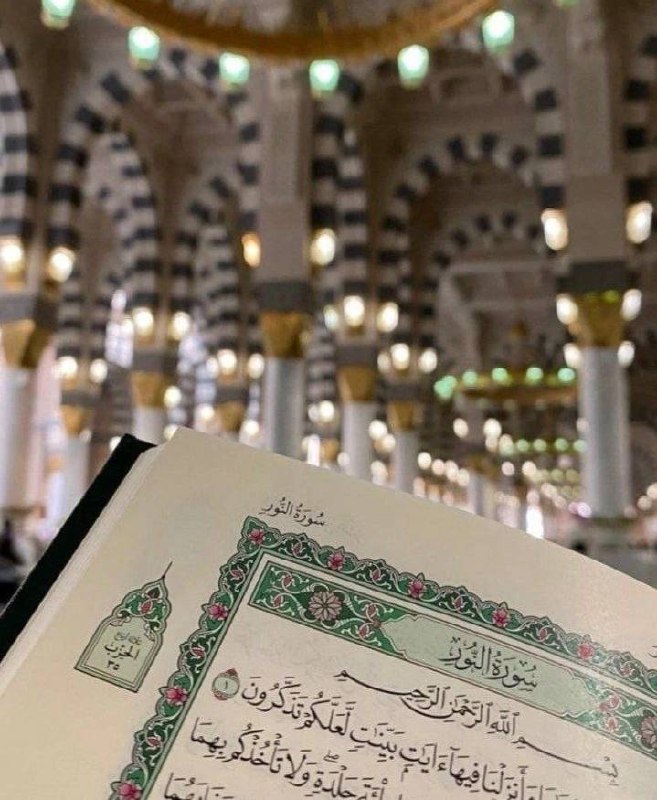 سُورَةُ النُّورِ
ثلاثة أرباع
الحزب
٣٥
سُورَةُ النُّورِ
بِسْمِ اللَّهِ الرَّحْمَٰنِ الرَّحِيمِ
وَأَنزَلْنَا فِيهَآ ءَايَٰتٍۭ بَيِّنَٰتٍ لَّعَلَّكُمْ تَذَكَّرُونَ ١
جَلْدَةٍۖ وَلَا تَأْخُذْكُم بِهِمَا